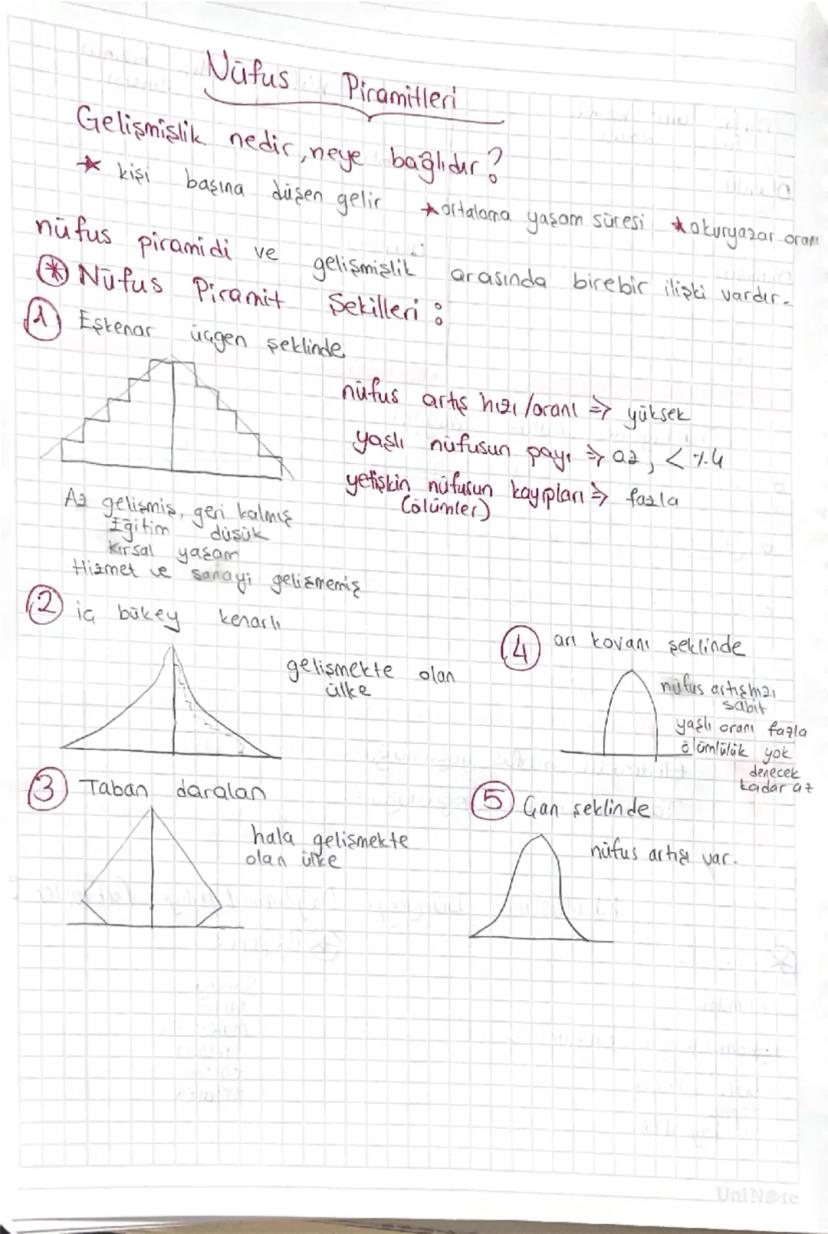 Nüfus Piramitleri
Gelişmişlik nedir, neye bağlıdır?
* kişi başına düşen gelir * ortalama yaşam süresi * okuryazar oranı
nüfus piramidi ve gelişmişlik arasında birebir ilişki vardır.
* Nüfus Piramit Şekilleri:
1 Eşkenar üçgen şeklinde
nüfus artış hızı/oranı => yüksek
yaşlı nüfusun payı => az, < %4
yetişkin nüfusun kayıpları => fazla
(ölümler)
Az gelişmiş, geri kalmış
Eğitim düşük
kırsal yaşam
Hizmet ve sanayi gelişmemiş
2 iç bükey kenarlı
gelişmekte olan
ülke
3 Taban daralan
hala gelişmekte
olan ülke
4 arı kovanı şeklinde
nüfus artış hızı
sabit
yaşlı oranı fazla
ölümlülük yok
denecek
kadar az
5 Çan şeklinde
nüfus artışı var.
UniNote